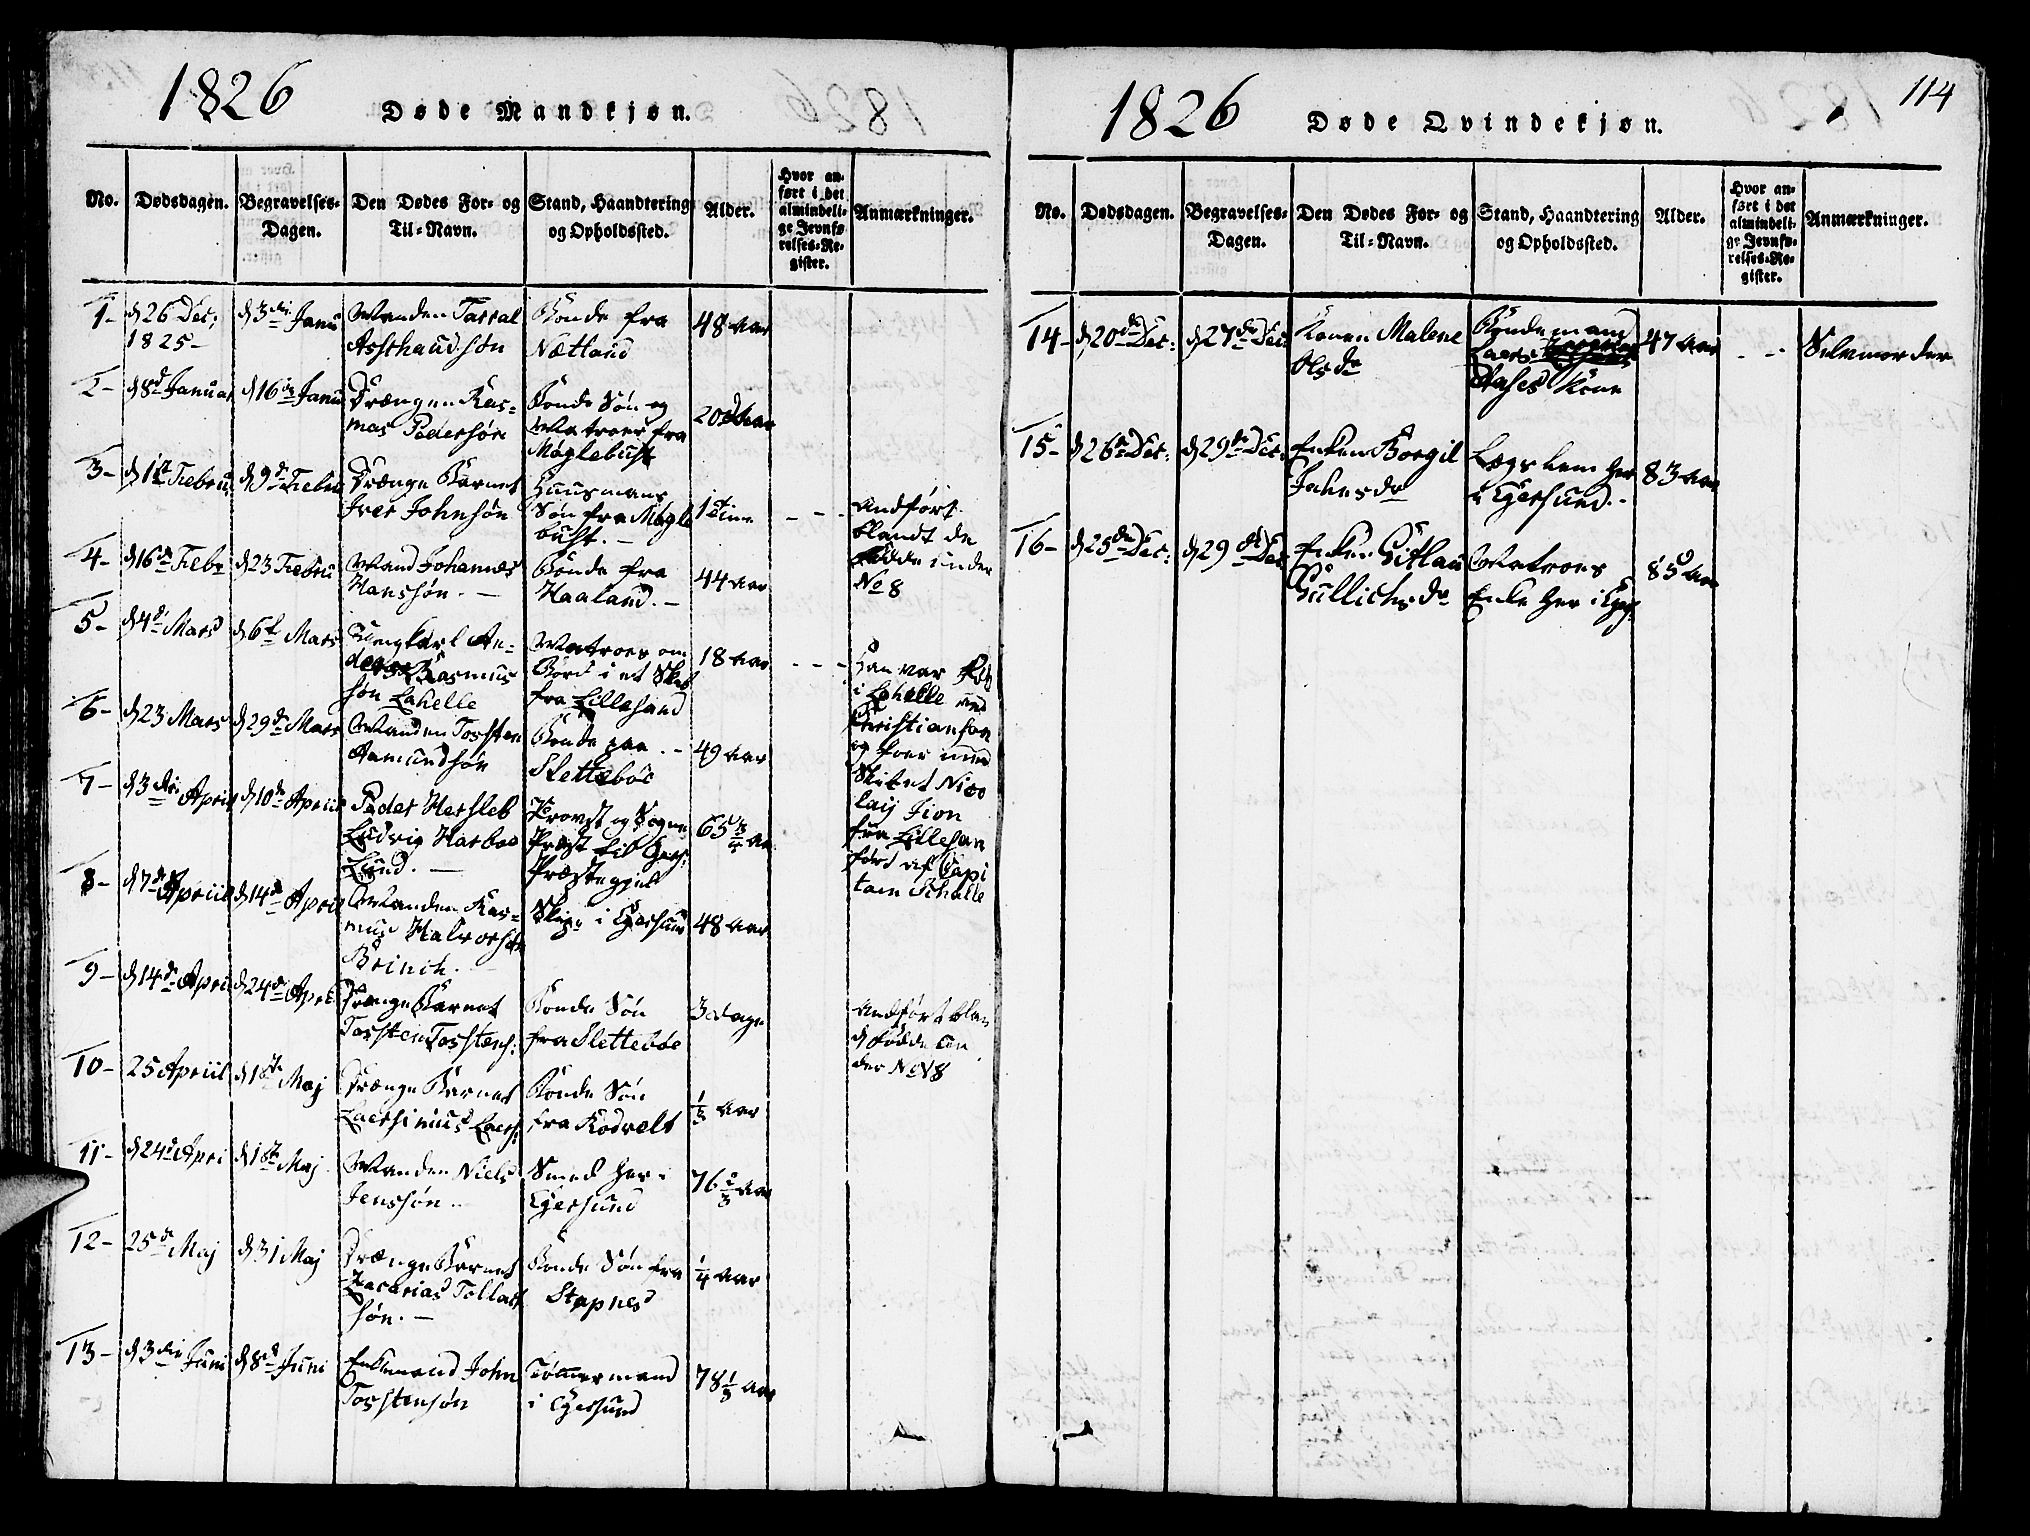 1826
Døde Mandkjøn.
No.
Dødsdagen.
Begravelses-
Dagen.
Den Dødes For- og
Til-Navn.
Stand, Haandtering
og Opholdssted.
Alder.
Hvor an-
ført i det
almindeli-
ge Jevnfø-
relses-Re-
gister.
Anmærkninger.
1-
d 26 Dec;
1825-
d 3die Janu
Manden Tarral
Asthaudsøn
Bonde fra
Nætland
48 aar
2-
d 8d Januar
d 16de Janu
Drængen Ras-
mas Pedersøn
Bonde Søn og
Matroes fra
Møglebust
20 Aar
3-
d 1ste Februa
d 9d Febru
Drænge Barnet
Iver Johnsøn
Huusmans
Søn fra Møgle
bust. -
1 Time
- - -
andført
blandt de
fødde under
No 8
4-
d 16de Febr
d 23 Febru
Mand Johannes
Hanssøn. -
Bonde fra
Haaland. -
44 aar
5-
d 4de Mars
d 6te Mars
Ungkarl An-
ders Rasmus
søn Lahelle
Matroes om
Bord i et Skib
fra Lillesand
18 aar
- - -
Han var
i Lahelle ved
Christiansan
og foer med
Skibet Nico
laij Fion
fra Lillesan
ført af Capi
tain Schalle
6-
d 23 Mars
d 29de Mars
Manden Torsten
Aamundsøn
Bonde paa -
Slettebøe
49 aar
7-
d 3die April
d 10de Apriil
Peder Hersleb
Ludvig Harboe
Lund. -
Provst og Sogne
Præst til Egers:
Præstegjeld
65 3/4 aa
8-
d 7de Apriil
d 14de Apriil
Manden Ras-
mus Halvorsøn
Brinch. -
Skip: i Egersund
48 aar
9-
d 14de Apri
d 24de Apri
Drænge Barnet
Torsten Torstens:
Bonde Søn
fra Slettebøe
3 dage
andført blan
d fødde un
der No 18
10-
25 Apriil
d 1ste Maj
Drænge Barnet
Laersinius Laers:
Bonde Søn
fra Rodvelt
1/3 aar
11-
d 24d Apri
d 1ste Maj
Manden Niels
Jenssøn -
Smed her i
Egersund
76 2/3 aar
12-
25de Maj
d 31 Maj
Drænge Barnet
Zacarias Tollac
søn. -
Bonde Søn fra
Stapnes
1/4 aar
13-
d 3die Juni
d 8de Juni
Enkemand John
Torstensøn
Tømmermand
i Egersund
78 1/3 aar
1826
Døde Qvindekjøn.
114
No.
Dødsdagen.
Begravelses-
Dagen.
Den Dødes For- og
Til-Navn.
Stand, Haandtering
og Opholdssted.
Alder.
Hvor an-
ført i det
almindeli-
ge Jevnfø-
relses-Re-
gister.
Anmærkninger.
14-
d 20de Dec:
d 27de Dec:
Konen Malene
Olsdr
Bondemand
Laers
Aases Kone
47 aar
- -
Selvmorder
15-
d 26de Dec:
d 29de Dec:
Enken Borgil
Johnsdr
Lægslem her
i Egersund. -
83 aar
16-
d 25de Dec:
d 29de Dec
Enken Gitlau
Gullichsdr
Matroes
Enke her i Eger:
85 aar